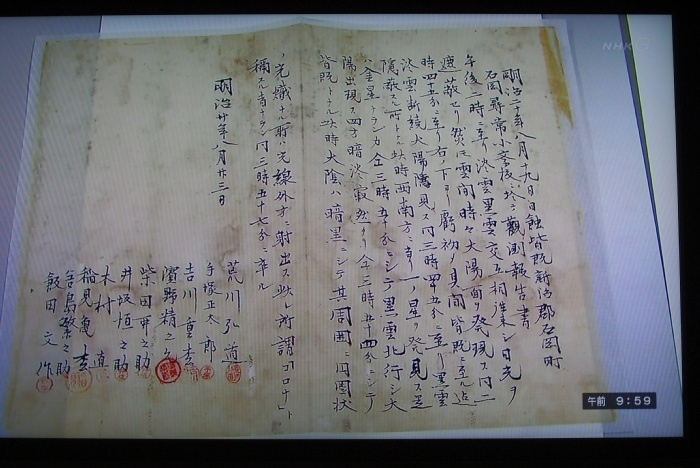 明治二十年八月十九日日蝕皆既新治郡石岡町
石岡尋常小学校ニ於テ観測報告書
午後二時ニ至リ淡雲黒雲交互相湊シ日光ヲ
遮蔽セリ然ニ雲間時々太陽面ヲ発現ス同二
時四十五分ニ至リ右ノ下ヨリ虧初ノ見
同三時四十五分ニ至リ黒雲
淡雲断続太陽隠見ス
隠蔽スル所トナル此時西南方ニ当リ一ノ星ヲ発見ス是
ハ金星ナランカ仝三時五十分ニシテ黒雲北行シ太
陽出現ス四方暗淡寂然タリ仝三時五十四分ニシテ
皆既トナル此時太陰ハ暗黒ニシテ其周囲ニ円圏状
ノ光熾ナル所ハ光線外方ニ射出ス此レ所謂「コロナ」ト
称スル者ナラン同三時五十七分ニ
明治廿年八月廿三日
荒川弘道
手塚正太郎
吉川重
濱野精之
柴田
井坂垣之助
木村直
稲見亀
飯島粂之助
飯田文作
NHK
午前 9:59